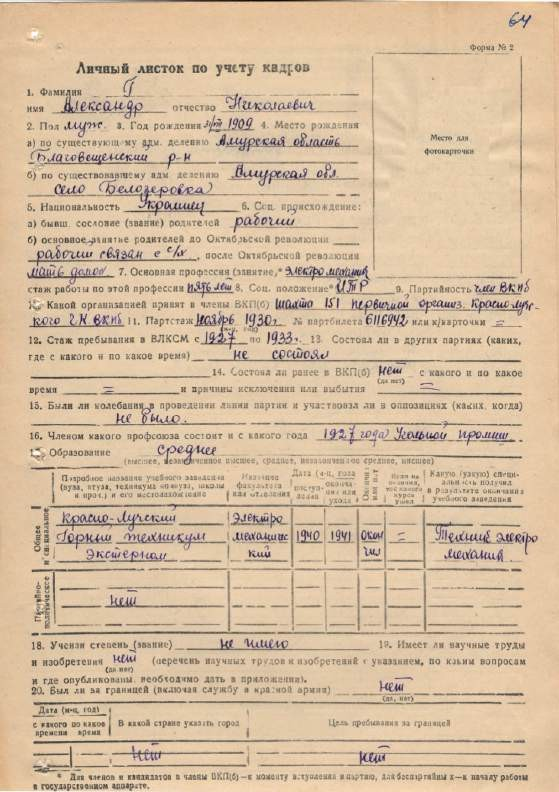 64
Форма № 2
Личный листок по учету кадров
1. Фамилия Г
имя Александр отчество Николаевич
2. Пол муж. 3. Год рождения 1909 4. Место рождения
а) по существующему адм. делению Амурская область
Благовещенский р-н
б) по существовавшему адм делению Амурская обл.
село Белозеровка
Место для
фотокарточки
5. Национальность Украинец 6. Соц. происхождение:
а) бывш. сословие (звание) родителей рабочий
б) основное занятие родителей до Октябрьской революции
рабочий связан с с/х, после Октябрьской революции
мать домох 7. Основная профессия (занятие,* электромеханик
стаж работы по этой профессии пять лет 8. Соц. положение* ИТР 9. Партийность член ВКПб
10. Какой организацией принят в члены ВКП(б) шахта 151 первичной организ. Красно-Луч-
ского ГК ВКПб 11. Партстаж ноябрь 1930г. № партбилета 6116942 или к/карточки =
12. Стаж пребывания в ВЛКСМ с 1927 по 1933г. 13. Состоял ли в других партиях (каких,
где с какого и по какое время) не состоял
14. Состоял ли ранее в ВКП(б) нет с какого и по какое
(да нет)
время = и причины исключения или выбытия =
15. Были ли колебания в проведении линии партии и участвовал ли в оппозициях (каких, когда)
не было.
16. Членом какого профсоюза состоит и с какого года 1927 года Угольной промыш
17. Образование среднее
(высшее, незаконченное высшее, среднее, незаконченное среднее, низшее)
Подробное название учебного заведения (вуза, втуза, техникума, школы и проч.) и его местоположение
Название факультета или отделения
Дата (м-ц, год)
поступления
окончания или ухода
Окончил или нет
Если не окончил, то с какого курса ушел
Какую (узкую) специальность получил в результате окончания учебного заведения
Общее и специальное
Красно-Лучский Горный техникум Экстерном
Электромеханический
1940
1941
Окончил
=
Техник электромеханик
Партийно-политическое
нет
18. Ученая степень (звание) не имею 19. Имеет ли научные труды
и изобретения нет (перечень научных трудов и изобретений с указанием, по каким вопросам
(да нет)
и где опубликованы. необходимо дать в приложении).
20. Был ли за границей (включая службу в красной армии) нет
(да, нет)
Дата (м-ц, год)
с какого по какое время
В какой стране указать город
Цель пребывания за границей
нет
нет
* Для членов и кандидатов в члены ВКП(б)—к моменту вступления в партию, для беспартийных—к началу работы
в государственном аппарате.